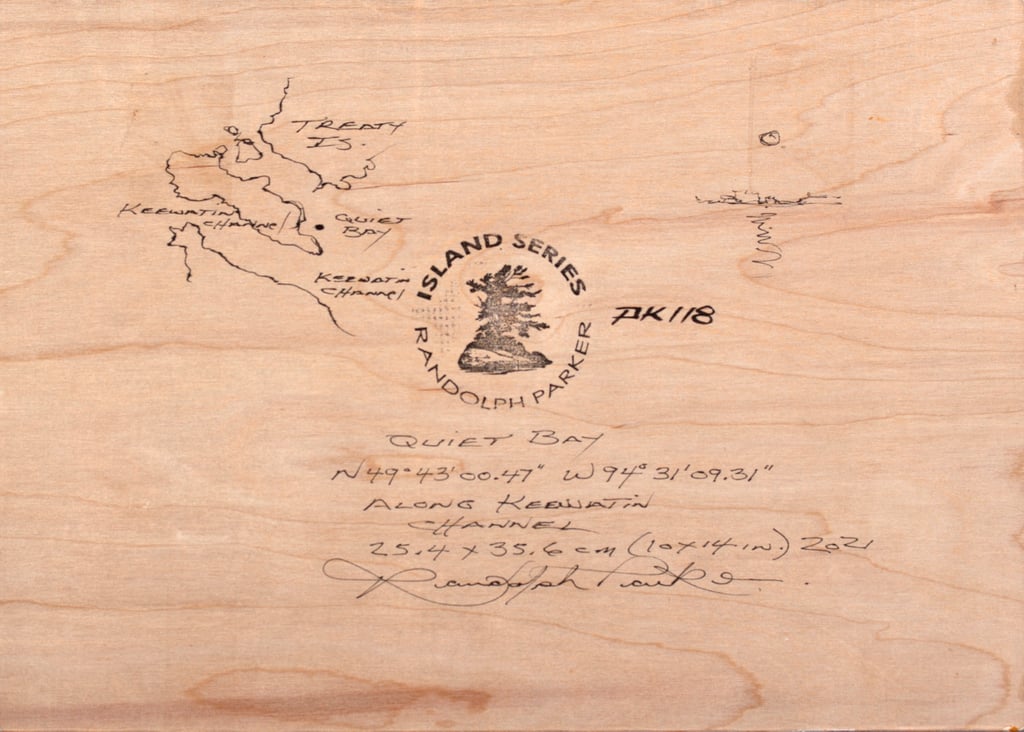 TREATY
IS.
KEEWATIN
CHANNEL
QUIET
BAY
KEEWATIN
CHANNEL
ISLAND SERIES
RANDOLPH PARKER
PK118
QUIET BAY
N 49° 43' 00.47" W 94° 31' 09.31"
ALONG KEEWATIN
CHANNEL
25.4 x 35.6 cm (10x14 in.) 2021
Randolph Parker